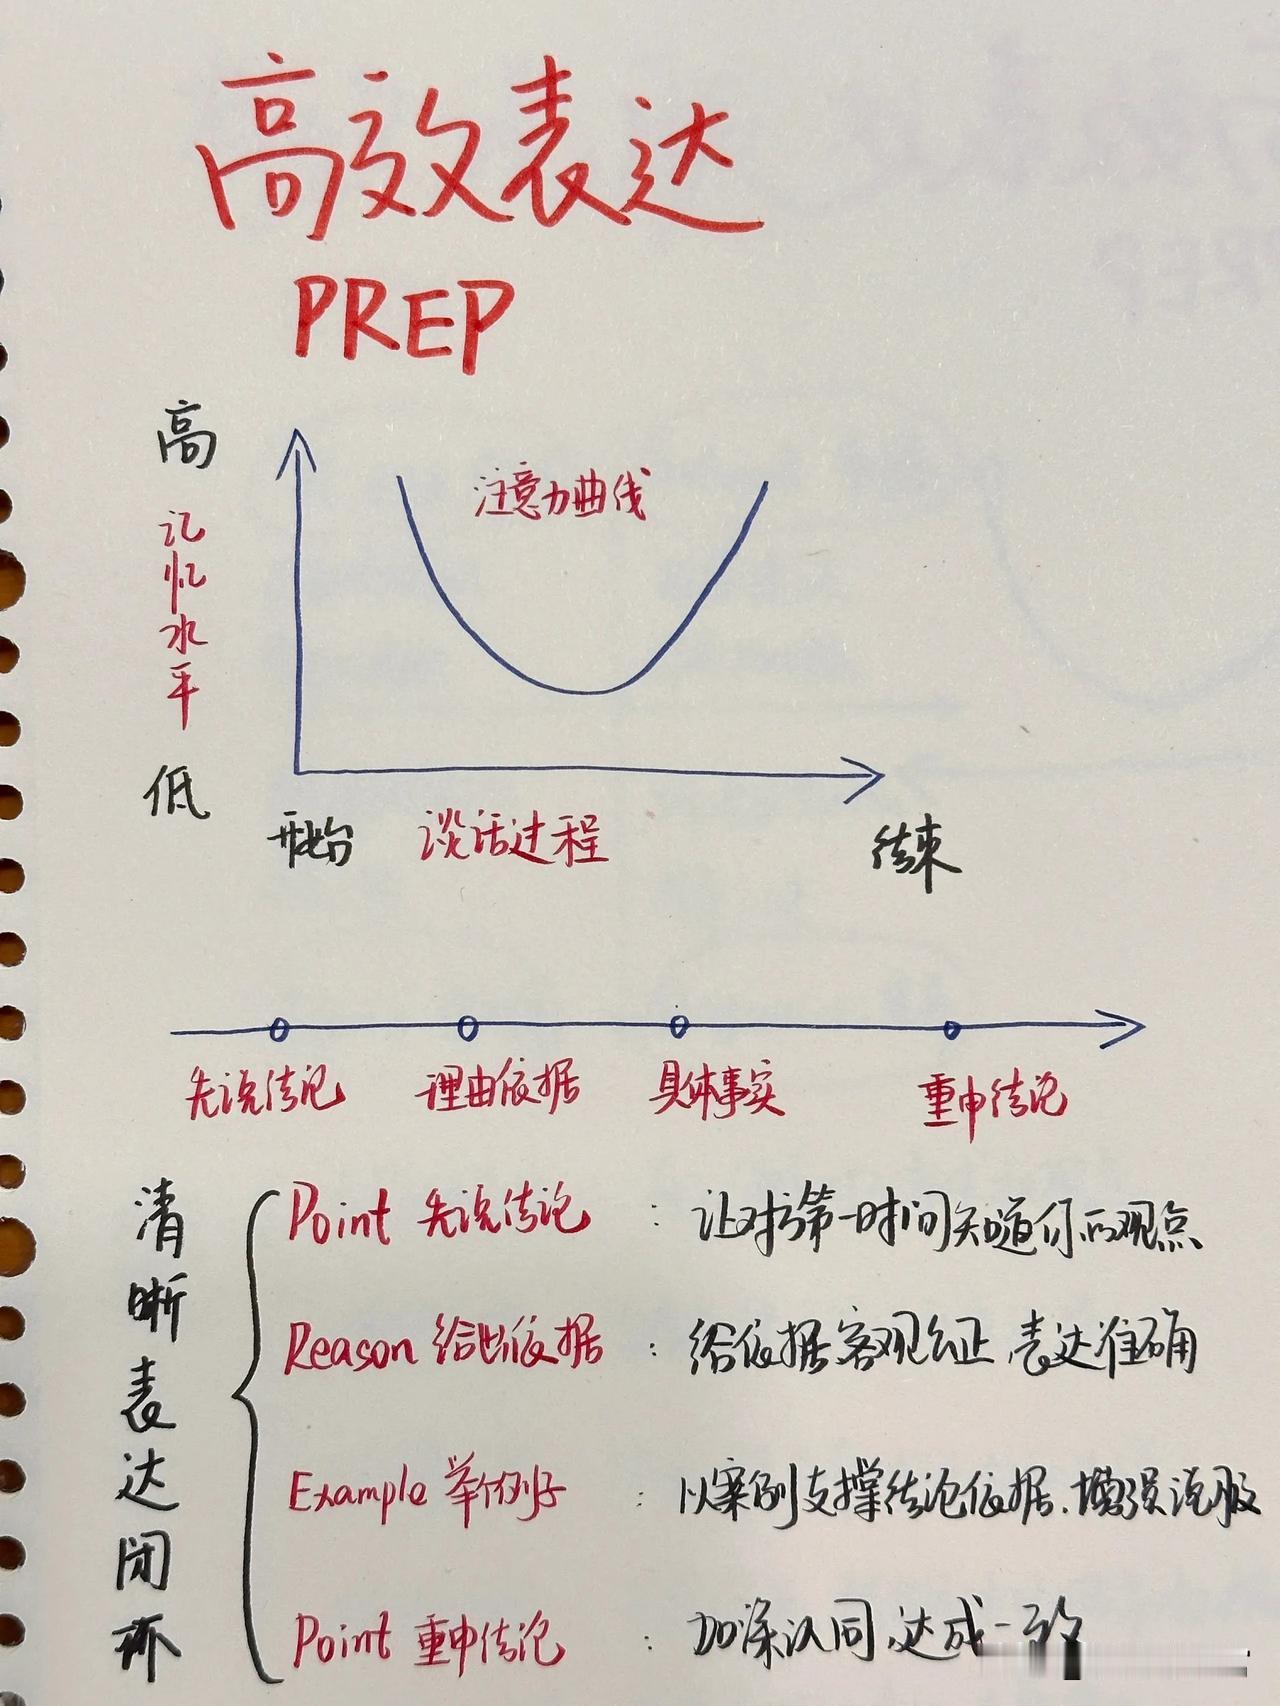 高效表达
PREP
高
记忆水平
低
注意力曲线
开始 谈话过程 结束
先说结论 理由依据 具体事实 重申结论
清晰表达闭环
Point 先说结论 : 让对方第一时间知道你的观点
Reason 给出依据 : 给依据,客观公正,表达准确
Example 举例子 : 以案例支撑结论依据.增强说服
Point 重申结论 : 加深认同,达成一致